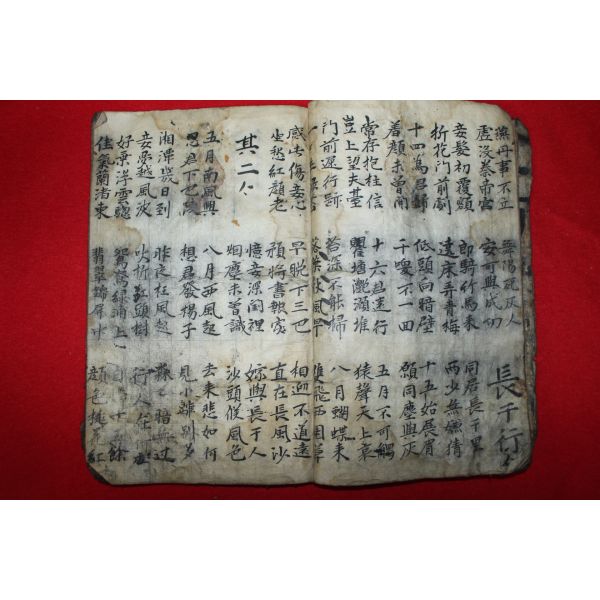 燕丹事不立 舞陽死灰人 長干行
虛沒秦帝宮 安可與成功
妾髮初覆額 郎騎竹馬來 同居長干里
折花門前劇 遶床弄青梅 兩少無嫌猜
十四爲君婦 低頭向暗壁 十五始展眉
羞顔未曾開 千喚不一回 願同塵與灰
常存抱柱信 十六君遠行 五月不可觸
豈上望夫臺 瞿塘灩澦堆 猿聲天上哀
門前遲行跡 苔深不能掃 八月蝴蝶來
落葉秋風早 雙飛西園草
感此傷妾心 早晚下三巴 相迎不道遠
坐愁紅顔老 預將書報家 直在長風沙
其二 憶妾深閨裡 嫁與長干人
烟塵未曾識 沙頭候風色
五月南風興 八月西風起 去來悲如何
思君下巴陵 想君發揚子 見少離別多
湘潭幾日到 昨夜狂風起 暗無邊
妾夢越風波 吹折江頭樹 行人在何處
好乘浮雲驄 鴛鴦綠浦上 十餘
佳氣蘭渚東 翡翠錦屛中 顔色桃花紅